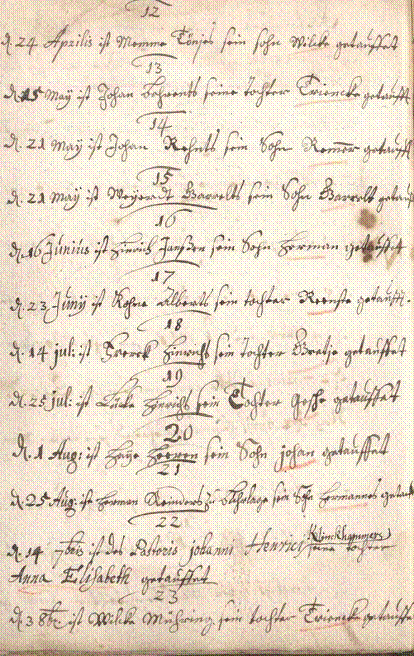 12
d. 24 Aprilis ist Memme Tönjes sein sohn Wilke getauffet
13
d. 15 May ist Johan Behrents seine tochter Triencke getaufft
14
d. 21 May ist Johan Rehnts sein Sohn Remmer getaufft
15
d. 21 May ist Meyerdt Barrelts sein Sohn Barrelt getauft
16
d. 16 Junius ist Hinrich Janßen sein Sohn Herman getauffet
17
d. 23 Junij ist Alberts sein tochter getauft.
18
d. 14 jul: ist Hinrichs sein Tochter getauffet
19
d. 25 jul: ist Hinrichs sein Tochter Gesche getauffet
20
d. 1 Aug: ist Haye Heeren sein Sohn johan getauffet
21
d. 25 Aug: ist Herman Reinders zu sein Sohn Hermannes
22
d. 14 ist des Pastoris johanni Henrici seine tochter
Anna Elisabeth getauffet
23
d. 3 8br. ist Wilke Mühring sein tochter Triencke getauffet